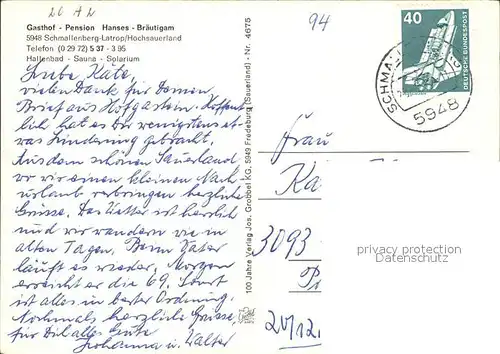 20 A2
94
Gasthof - Pension Hanses - Bräutigam
5948 Schmallenberg-Latrop/Hochsauerland
Telefon (0 29 72) 5 37 - 3 95
Hallenbad - Sauna - Solarium
Liebe Käte,
vielen Dank für Deinen
Brief aus Hofgastein. Hoffent
lich hat es Dir wenigstens et-
was Linderung gebracht.
Aus dem schönen Sauerland
wo wir einen kleinen Nach
urlaub verbringen herzliche
Grüsse. Das Wetter ist herrlich
und wir wandern wie in
alten Tagen. Beim Vater
läuft es wieder, Morgen
erreicht er die 69. Sonst
ist alles in bester Ordnung.
Nochmals herzliche Grüsse,
für Dich alles Gute
Johanna u. Walter
100 Jahre Verlag Jos. Grobbel KG, 5949 Fredeburg (Sauerland) - Nr. 4675
40
DEUTSCHE BUNDESPOST
SCHMALL
5948
Frau
Kä
3093
privacy protection
Datenschutz
20/12.